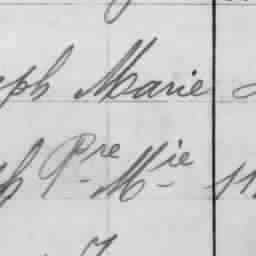 eph Marie
h Pre Mie 11